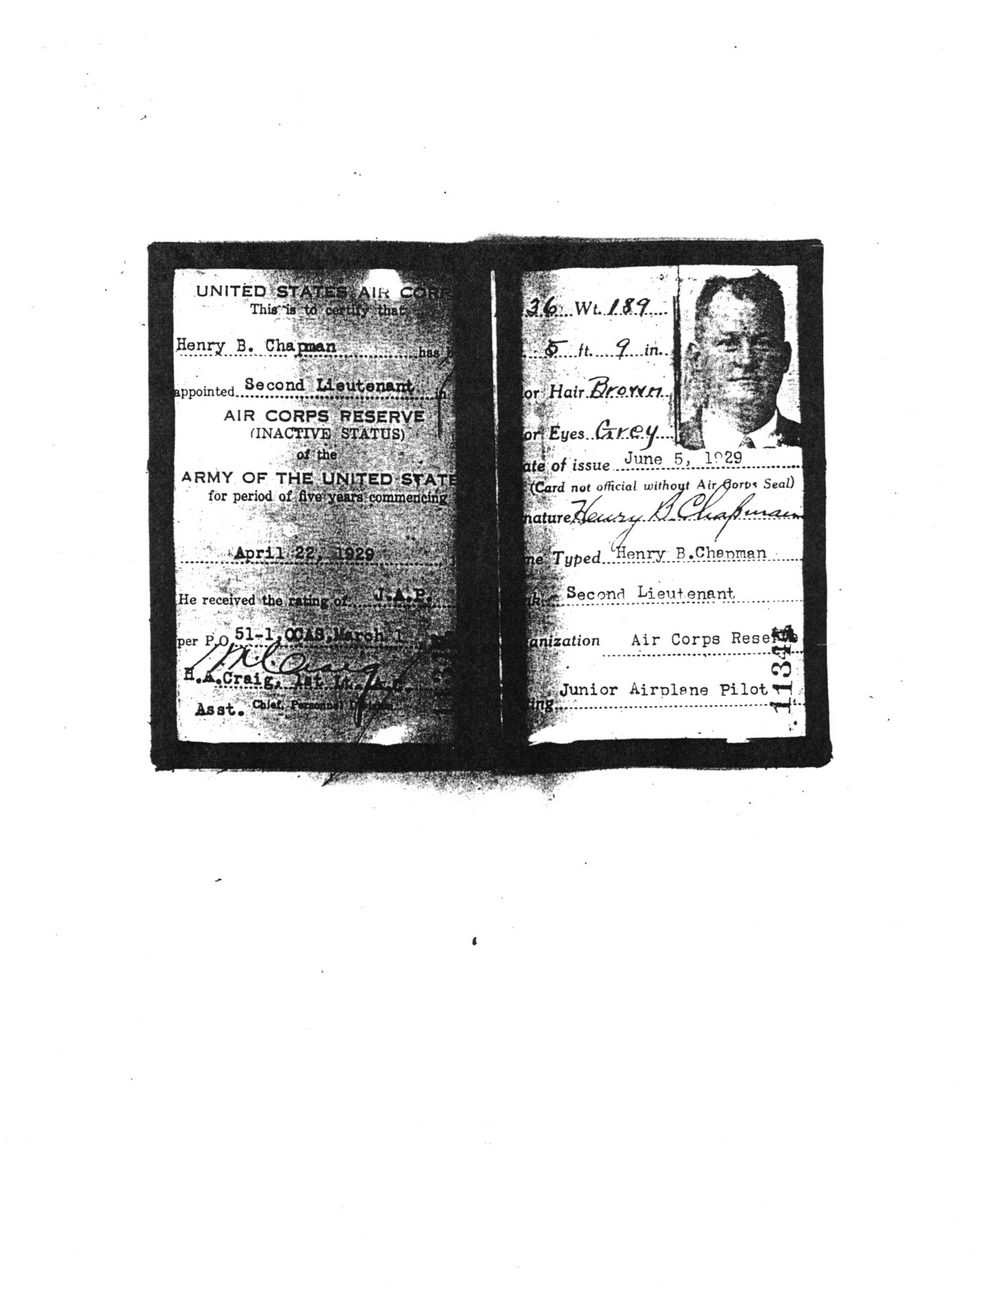 UNITED STATES AIR CORP
This is to certify that
Henry B. Chapman has
appointed Second Lieutenant in
AIR CORPS RESERVE
(INACTIVE STATUS)
of the
ARMY OF THE UNITED STATE
for period of five years commencing
April 22, 1929
He received the rating of J.A.P.
per P.O. 51-1, OCAS, March 1
H.A.Craig, 1st Lt., A.C.
Asst. Chief, Personnel Division
36 Wt. 189
5 ft. 9 in.
or Hair Brown
or Eyes Grey
ate of issue June 5, 1929
(Card not official without Air Corps Seal)
nature Henry B. Chapman
me Typed Henry B.Chapman
Second Lieutenant
anization Air Corps Reserve
ing Junior Airplane Pilot